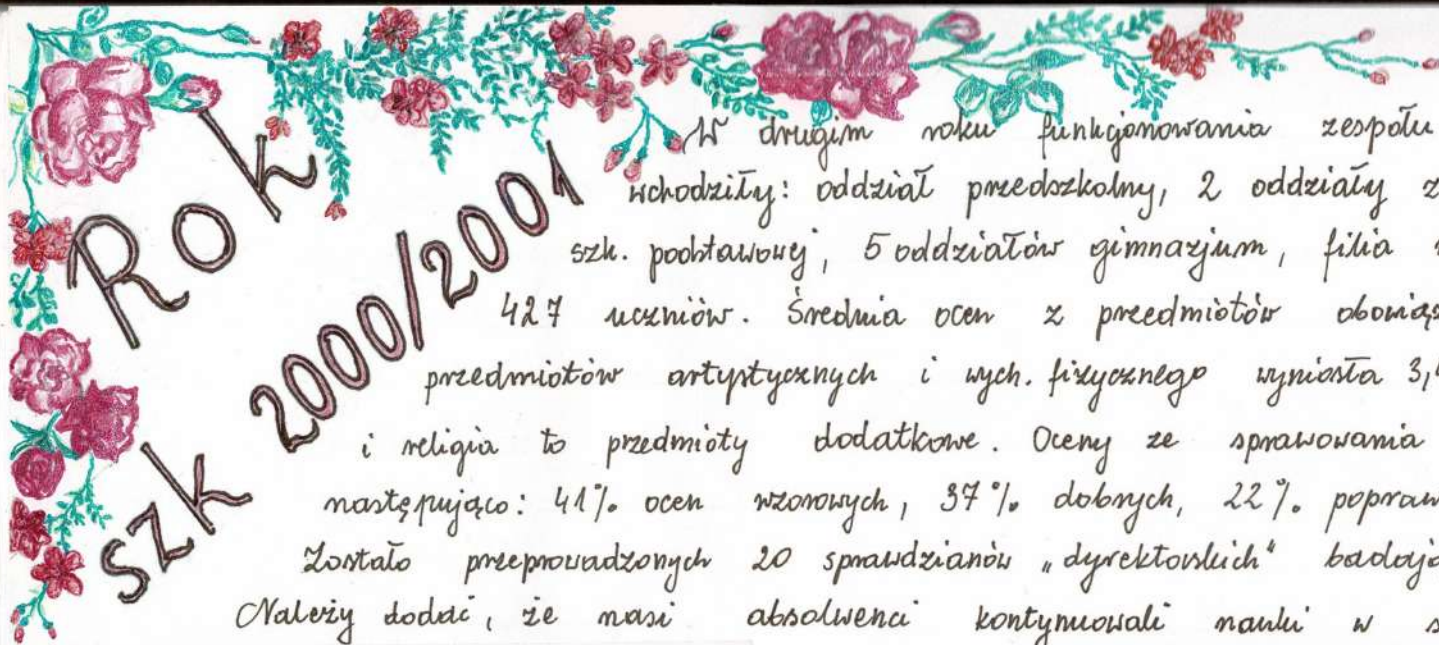 Rok
szk 2000/2001
W drugim roku funkcjonowania zespołu
wchodziły: oddział przedszkolny, 2 oddziały z
szk. podstawowej, 5 oddziałów gimnazjum, filia
427 uczniów. Średnia ocen z przedmiotów obowiąz
przedmiotów artystycznych i wych. fizycznego wyniosła 3,4
i religia to przedmioty dodatkowe. Oceny ze sprawowania
następująco: 41% ocen wzorowych, 37% dobrych, 22% popraw
Zostało przeprowadzonych 20 sprawdzianów „dyrektorskich" badają
Należy dodać, że nasi absolwenci kontynuowali nauki w s